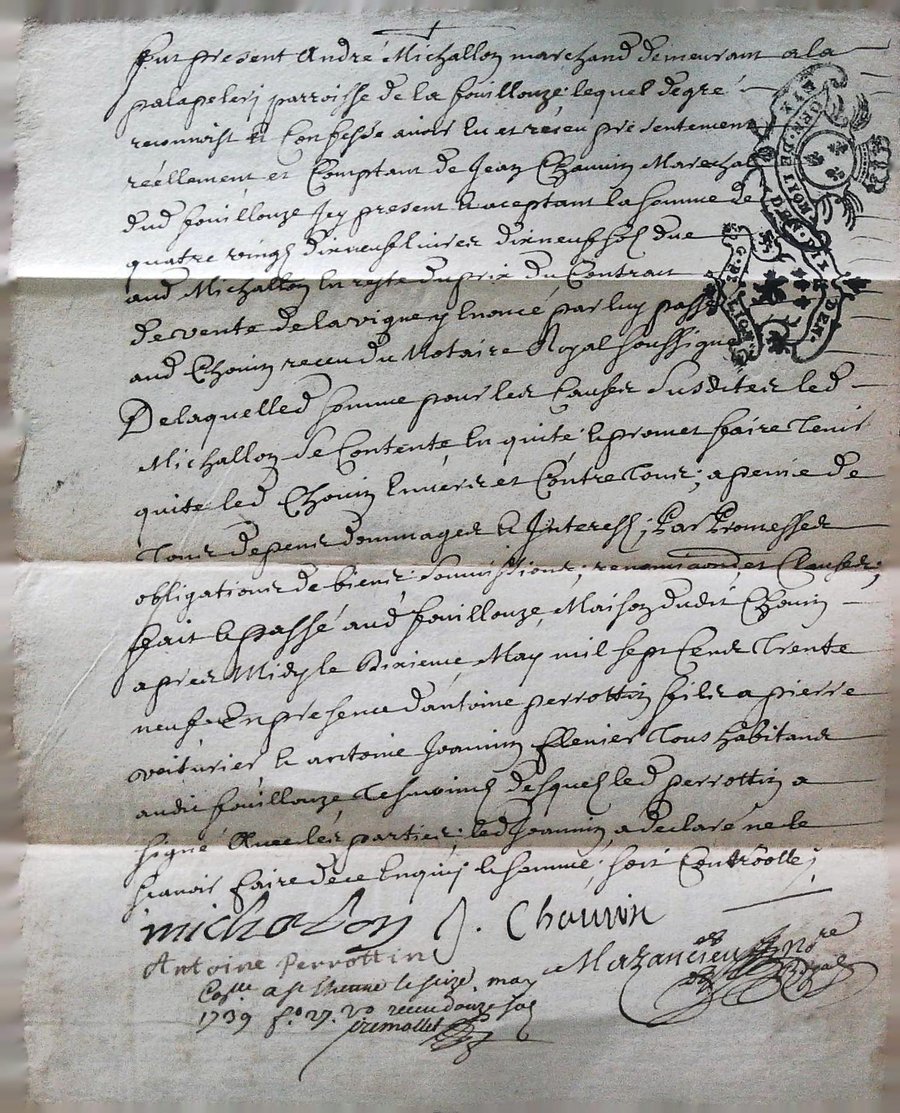 Fut present André Michallon marchand demeurant a la
palapelery parroisse de la fouillouze, lequel de gré
reconnoist & Confesse avoir Eu et réceu présentement
réellement et Comptant de Jean Chouvin Marechal
dud fouillouze Icy present & aceptant la somme de
quatre vingt dixneuf livres dixneuf sols due
aud Michallon En reste du prix du Contrat
de vente de la vigne y Enoncé par luy passé
aud Chovin receu du Notaire Royal soussigné
De laquelled somme pour les Causes Susdites led
Michallon Se Contente En quite & promet faire Tenir
quite led Chovin Envers et Contre Tous; a peine de
Tous depens dommages & Interests; Par Promesses
obligations de biens soumissions, renonciaons, et Clauses,
fait & passé aud fouillouze, Maison dudit Chovin
apres Midy le Dixieme May mil sept Cents Trente
neuf, En presence d'antoine perrottin fils a pierre
voiturier & antoine Joannin Tous habitans
audit fouillouze, Tesmoins desquels led perrottin a
signé Avec les parties, led Joannin a declaré ne le
scavoir faire de ce Enquis & sommé, soit Controollé;
michalon J. Chouvin
Antoine Perrottin
Mazancieu Nore
Royal
Colle a st Etienne le seize may
1739 fo 27. Vo receu douze sols
GEN. DE LYON
DEN.
G. DE LION
DEN.